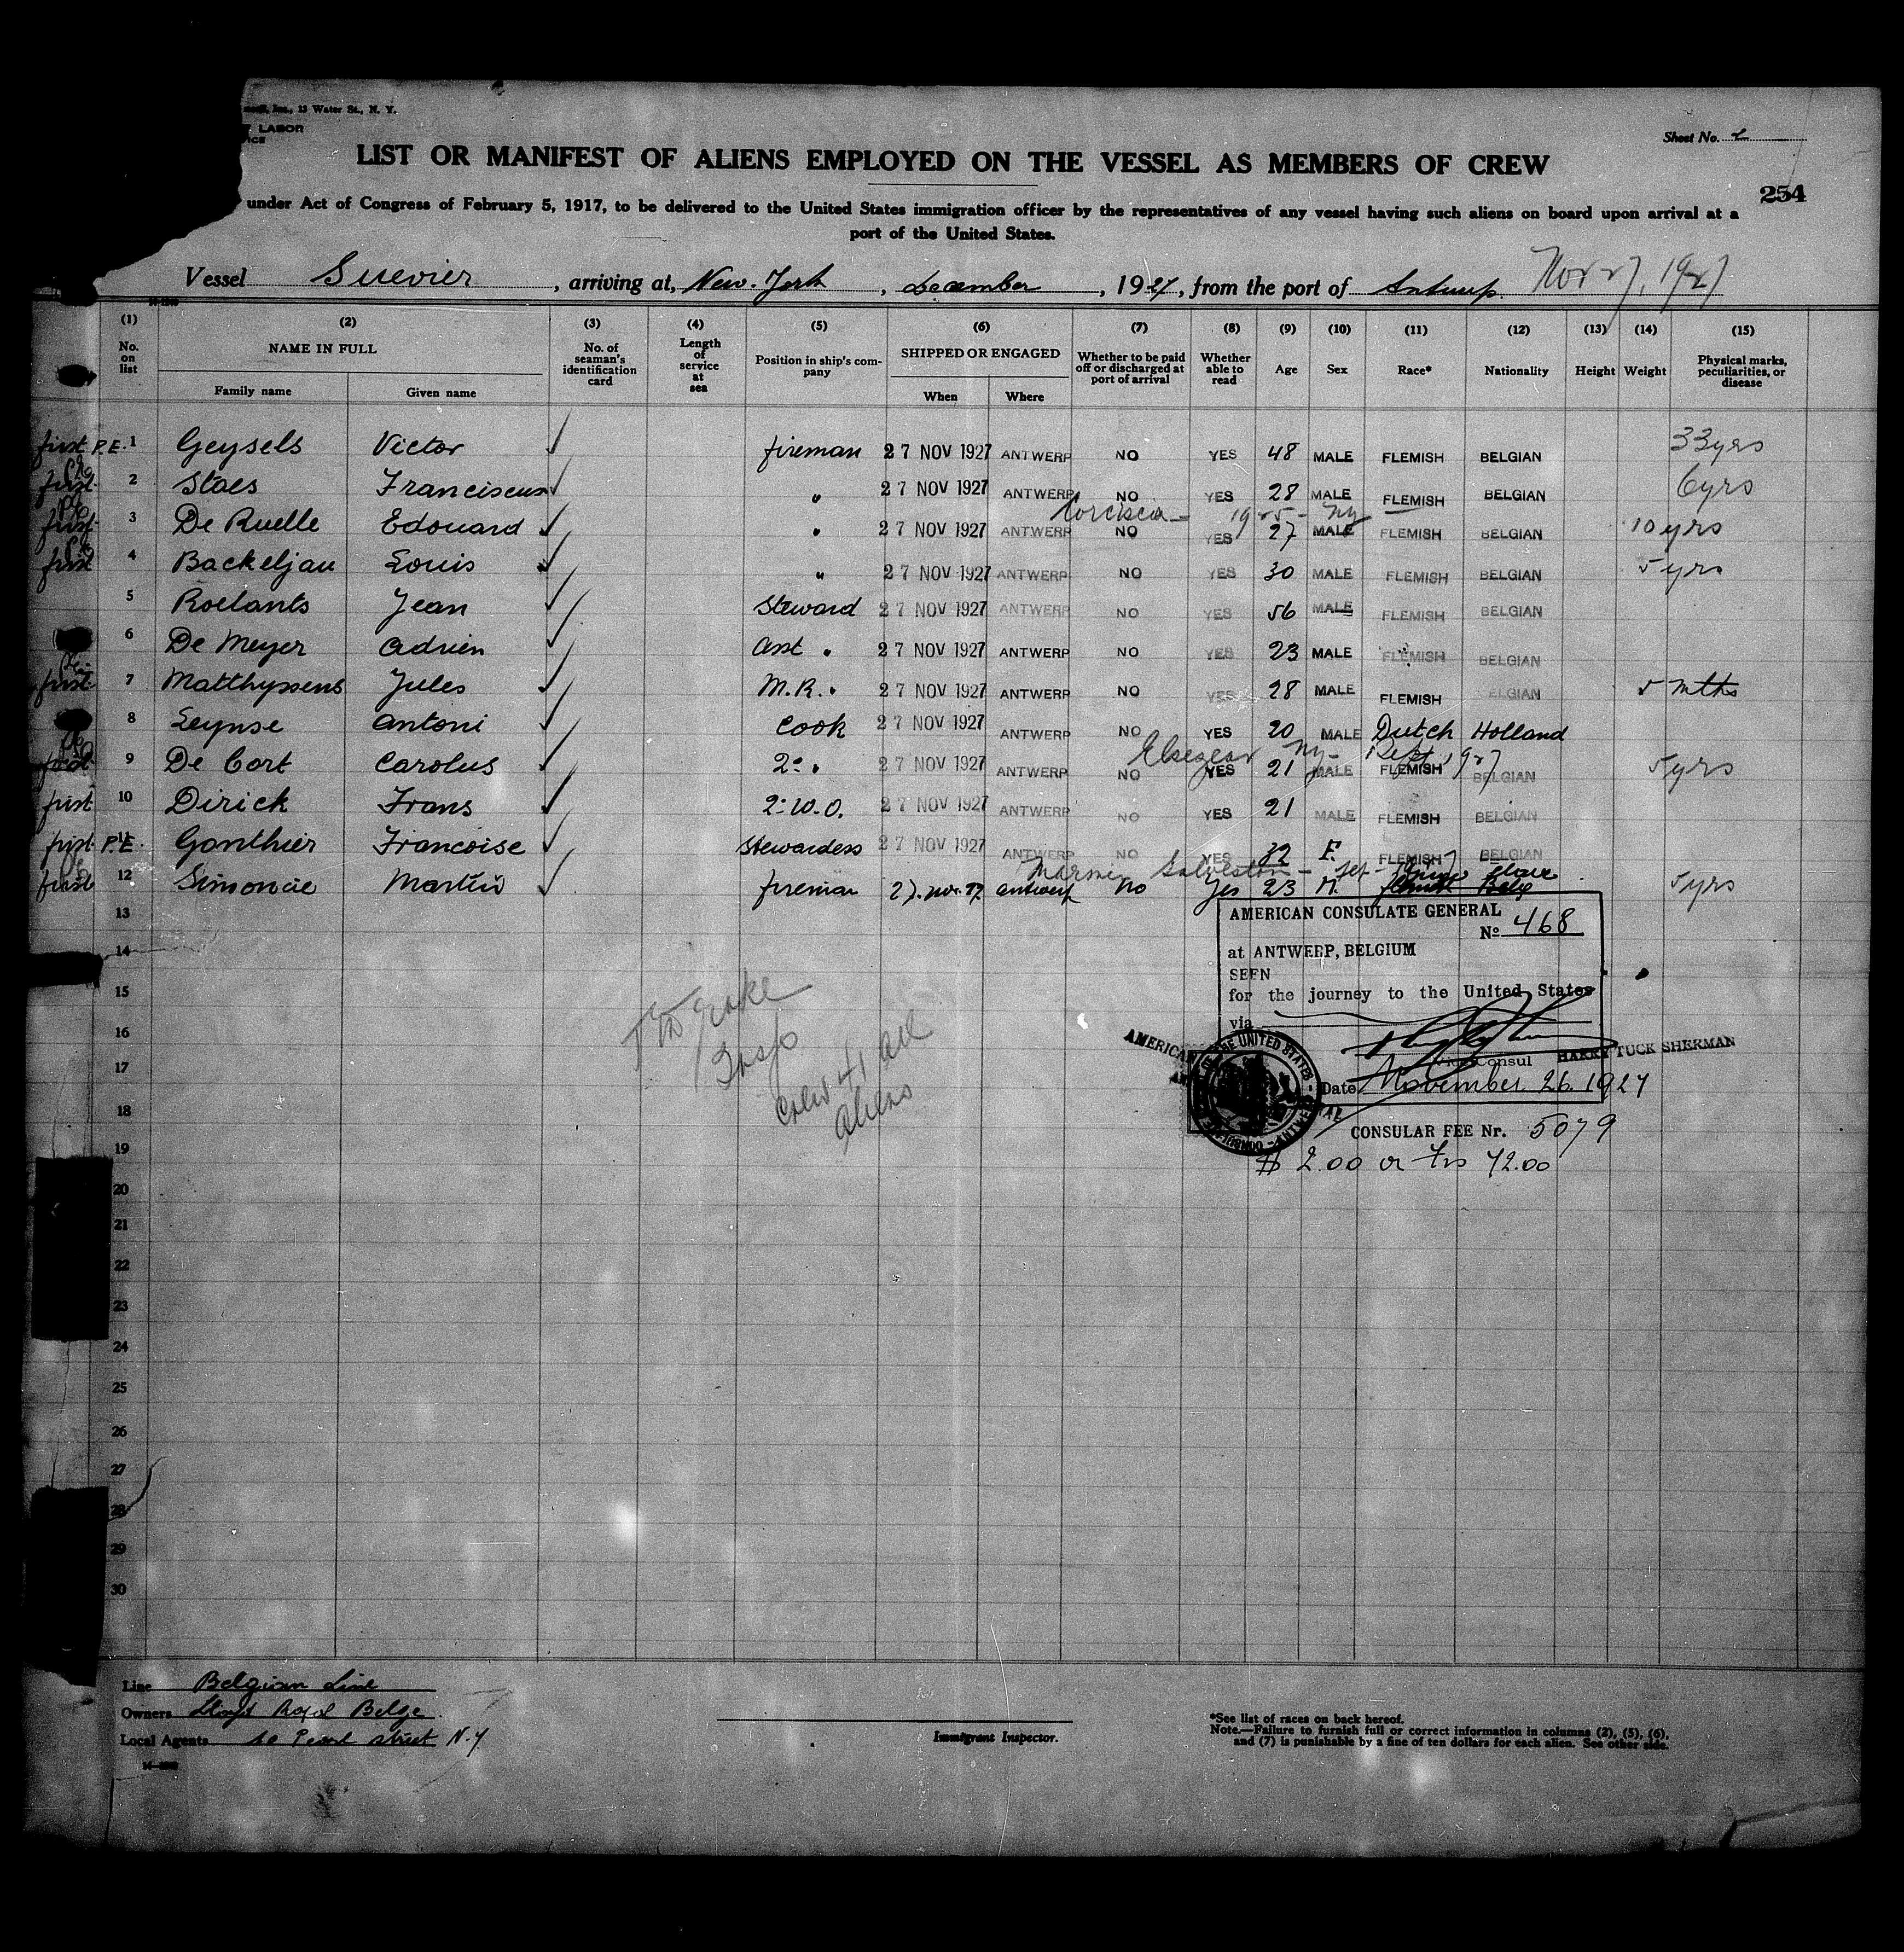 Inc., 13 Water St., N. Y.
LABOR
Sheet No. 2
LIST OR MANIFEST OF ALIENS EMPLOYED ON THE VESSEL AS MEMBERS OF CREW
254
under Act of Congress of February 5, 1917, to be delivered to the United States immigration officer by the representatives of any vessel having such aliens on board upon arrival at a
port of the United States.
Vessel Suevier, arriving at, New-York, december, 1927, from the port of Antwerp. Nov 27, 1927
(1) (2) (3) (4) (5) (6) (7) (8) (9) (10) (11) (12) (13) (14) (15)
No. on list NAME IN FULL No. of seaman's identification card Length of service at sea Position in ship's company SHIPPED OR ENGAGED Whether to be paid off or discharged at port of arrival Whether able to read Age Sex Race* Nationality Height Weight Physical marks, peculiarities, or disease
Family name Given name When Where
first P.E. 1 Geysels Victor fireman 27 NOV 1927 ANTWERP NO YES 48 MALE FLEMISH BELGIAN 33yrs
first 2 Staes Franciscus " 27 NOV 1927 ANTWERP NO YES 28 MALE FLEMISH BELGIAN 6yrs
1925 - NY
first 3 De Ruelle Edouard " 27 NOV 1927 ANTWERP NO YES 27 MALE FLEMISH BELGIAN 10 yrs
first 4 Backeljau Louis " 27 NOV 1927 ANTWERP NO YES 30 MALE FLEMISH BELGIAN 5 yrs
5 Roelants Jean Steward 27 NOV 1927 ANTWERP NO YES 56 MALE FLEMISH BELGIAN
6 De Meyer Adrien Asst " 27 NOV 1927 ANTWERP NO YES 23 MALE FLEMISH BELGIAN
first 7 Matthyssens Jules M.R. " 27 NOV 1927 ANTWERP NO YES 28 MALE FLEMISH BELGIAN 5 mths
8 Leynse Antoni Cook 27 NOV 1927 ANTWERP NO YES 20 MALE Dutch Holland
NY - Sept 1927
9 De Cort Carolus 2e " 27 NOV 1927 ANTWERP NO YES 21 MALE FLEMISH BELGIAN 5yrs
first 10 Dirick Frans 2e W.O. 27 NOV 1927 ANTWERP NO YES 21 MALE FLEMISH BELGIAN
first P.E. 11 Gonthier Francoise Stewardess 27 NOV 1927 ANTWERP NO YES 32 F. FLEMISH BELGIAN
Galveston - Sep -
first 12 Simoncie Martin fireman 27. nov. 27 antwerp no Yes 23 M. Belg 5yrs
13
14
15
16
17
18
19
20
21
22
23
24
25
26
27
28
29
30
AMERICAN CONSULATE GENERAL
No 468
at ANTWERP, BELGIUM
SEEN
for the journey to the United States
via
HARRY TUCK SHERMAN
Vice Consul
Date November 26. 1927
CONSULAR FEE Nr. 5079
$ 2.00 or Frs 72.00
Crew 41 all
aliens
Line Belgian Line
Owners Lloyd Royal Belge.
Local Agents 10 Pearl street N.Y
Immigrant Inspector.
*See list of races on back hereof.
Note.—Failure to furnish full or correct information in columns (2), (5), (6),
and (7) is punishable by a fine of ten dollars for each alien. See other side.